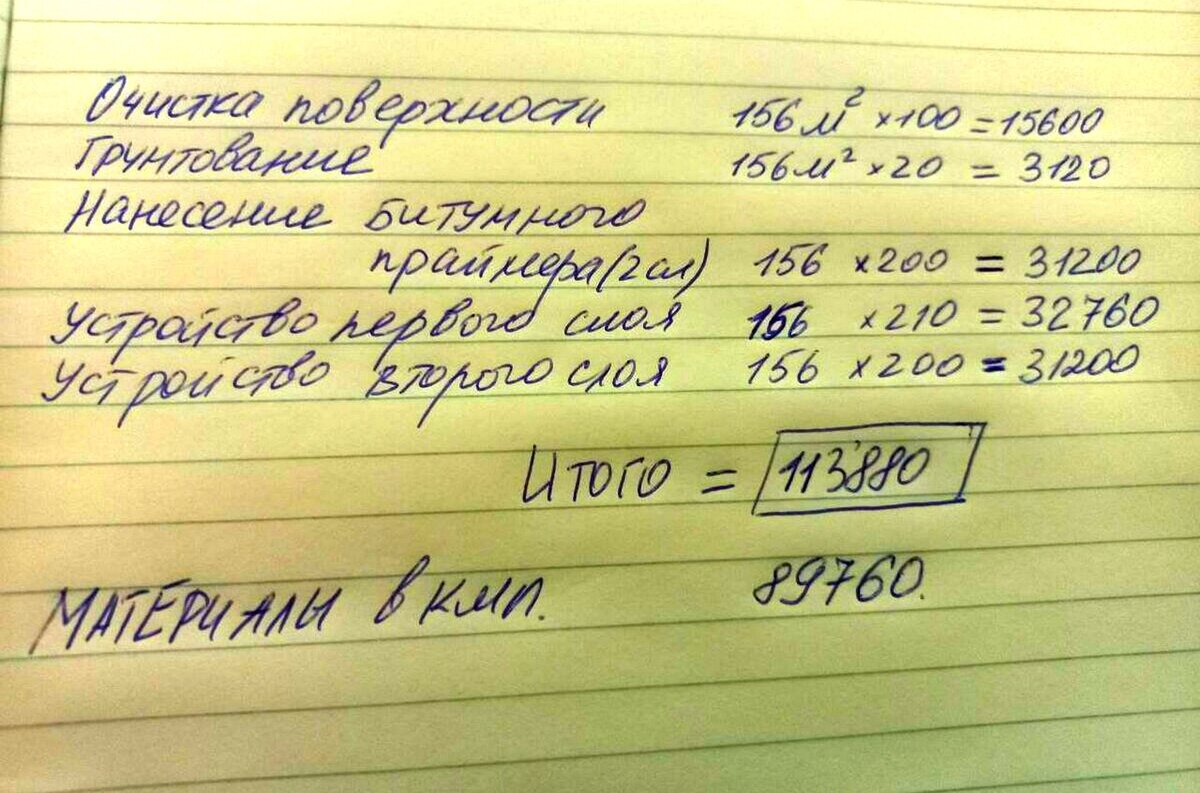 Очистка поверхности 156 м² ×100 = 15600
Грунтование 156 м² ×20 = 3120
Нанесение битумного
праймера (2 сл) 156 ×200 = 31200
Устройство первого слоя 156 ×210 = 32760
Устройство второго слоя 156 ×200 = 31200
Итого = 113880
МАТЕРИАЛЫ в кмп. 89760.